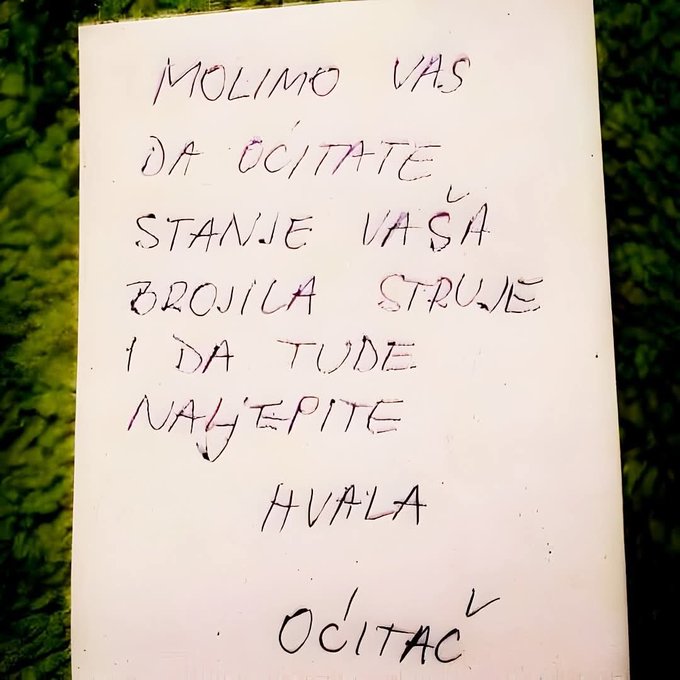 MOLIMO VAS
DA OĆITATE
STANJE VAŠA
BROJILA STRUJE
I DA TUDE
NALjEPITE
HVALA
OĆITAČ